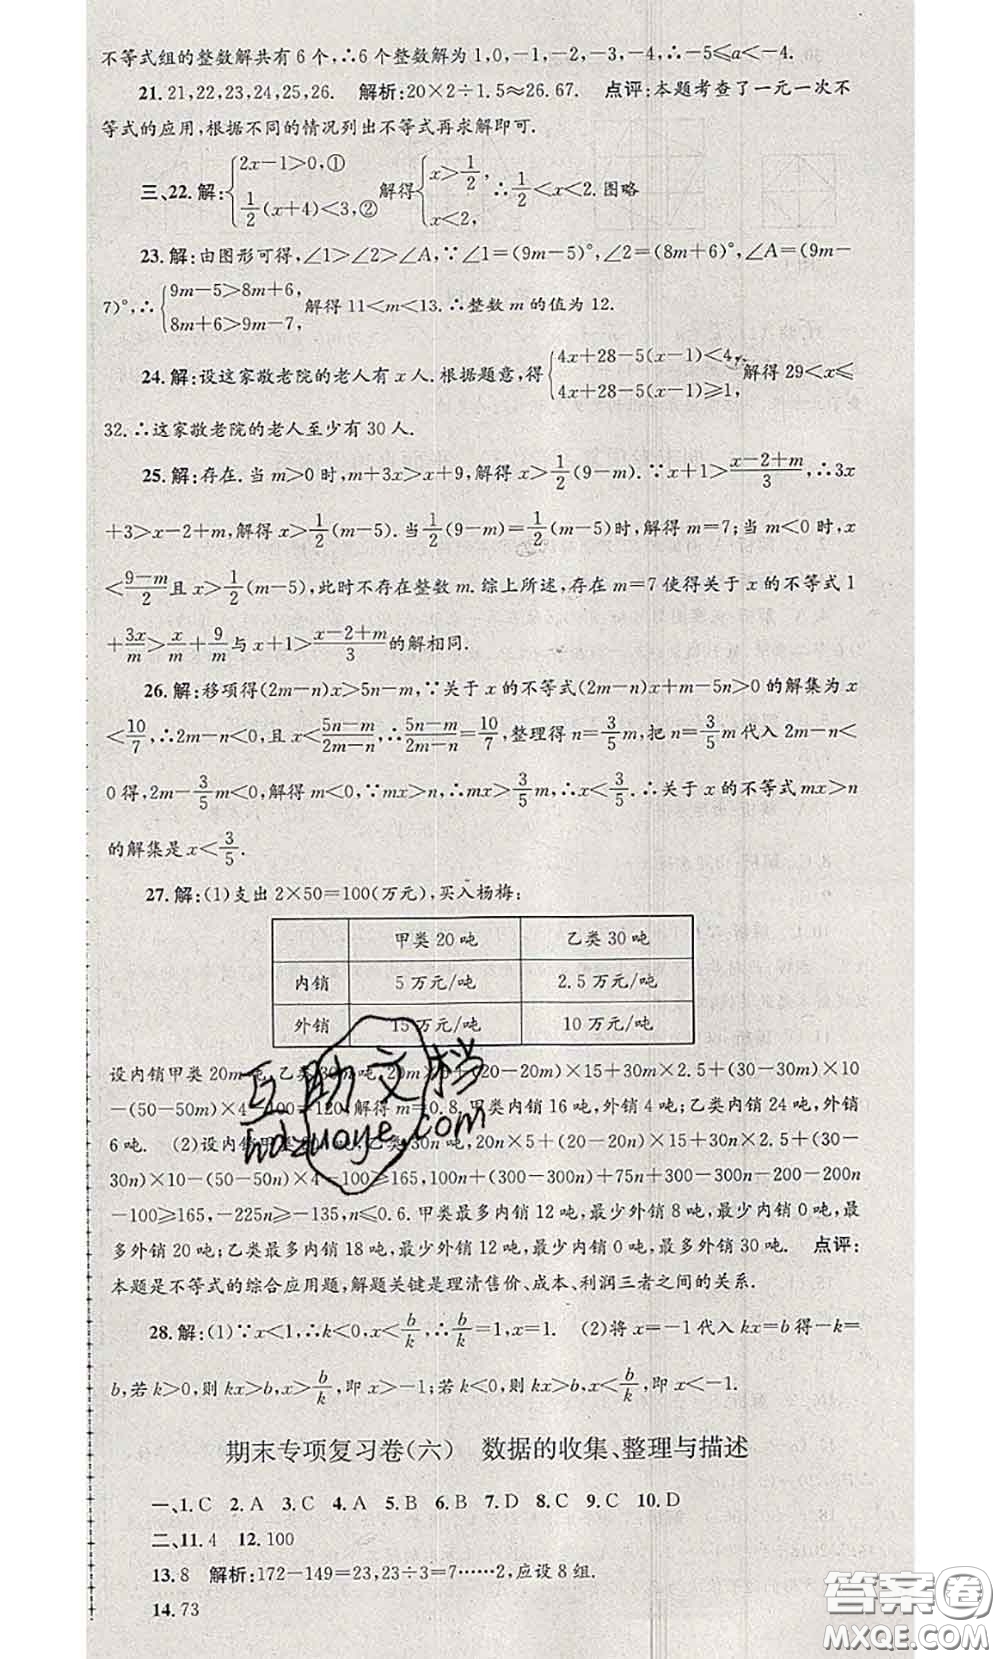 不等式组的整数解共有6个,∴6个整数解为1,0,-1,-2,-3,-4,∴-5≤a<-4.
21.21,22,23,24,25,26. 解析:20×2÷1.5≈26.67. 点评:本题考查了一元一次不
等式的应用,根据不同的情况列出不等式再求解即可.
三、22.解:{2x-1>0,① 1/2(x+4)<3,② 解得{x>1/2, x<2, ∴1/2<x<2.图略
23.解:由图形可得,∠1>∠2>∠A,∵∠1=(9m-5)°,∠2=(8m+6)°,∠A=(9m-
7)°,∴{9m-5>8m+6, 8m+6>9m-7, 解得11<m<13.∴整数m的值为12.
24.解:设这家敬老院的老人有x人.根据题意,得{4x+28-5(x-1)<4, 4x+28-5(x-1)≥1, 解得29<x≤
32.∴这家敬老院的老人至少有30人.
25.解:存在.当m>0时,m+3x>x+9,解得x>1/2(9-m).∵x+1>(x-2+m)/3,∴3x
+3>x-2+m,解得x>1/2(m-5).当1/2(9-m)=1/2(m-5)时,解得m=7;当m<0时,x
<(9-m)/2且x>1/2(m-5),此时不存在整数m.综上所述,存在m=7使得关于x的不等式1
+3x/m>x/m+9/m与x+1>(x-2+m)/3的解相同.
26.解:移项得(2m-n)x>5n-m,∵关于x的不等式(2m-n)x+m-5n>0的解集为x
<10/7,∴2m-n<0,且x<(5n-m)/(2m-n),∴(5n-m)/(2m-n)=10/7,整理得n=3/5m,把n=3/5m代入2m-n<
0得,2m-3/5m<0,解得m<0,∵mx>n,∴mx>3/5m,∴x<3/5.∴关于x的不等式mx>n
的解集是x<3/5.
27.解:(1)支出2×50=100(万元),买入杨梅:
甲类20吨 乙类30吨
内销 5万元/吨 2.5万元/吨
外销 15万元/吨 10万元/吨
设内销甲类20m吨,乙类30m吨,20m×5+(20-20m)×15+30m×2.5+(30-30m)×10
-(50-50m)×4-100=120,解得m=0.8.甲类内销16吨,外销4吨;乙类内销24吨,外销
6吨. (2)设内销甲类20n吨,乙类30n吨,20n×5+(20-20n)×15+30n×2.5+(30-
30n)×10-(50-50n)×4-100≥165,100n+(300-300n)+75n+300-300n-200+200n
-100≥165,-225n≥-135,n≤0.6.甲类最多内销12吨,最少外销8吨,最少内销0吨,最
多外销20吨;乙类最多内销18吨,最少外销12吨,最少内销0吨,最多外销30吨. 点评:
本题是不等式的综合应用题,解题关键是理清售价、成本、利润三者之间的关系.
28.解:(1)∵x<1,∴k<0,x<b/k,∴b/k=1,x=1. (2)将x=-1代入kx=b得-k=
b,若k>0,则kx>b,x>b/k,即x>-1;若k<0,则kx>b,x<b/k,即x<-1.
期末专项复习卷(六) 数据的收集、整理与描述
一、1.C 2.A 3.C 4.A 5.B 6.B 7.D 8.C 9.C 10.D
二、11.4 12.100
13.8 解析:172-149=23,23÷3=7……2,应设8组.
14.73
互助文档
hdzuoye.com
答案圈
MXQE.COM